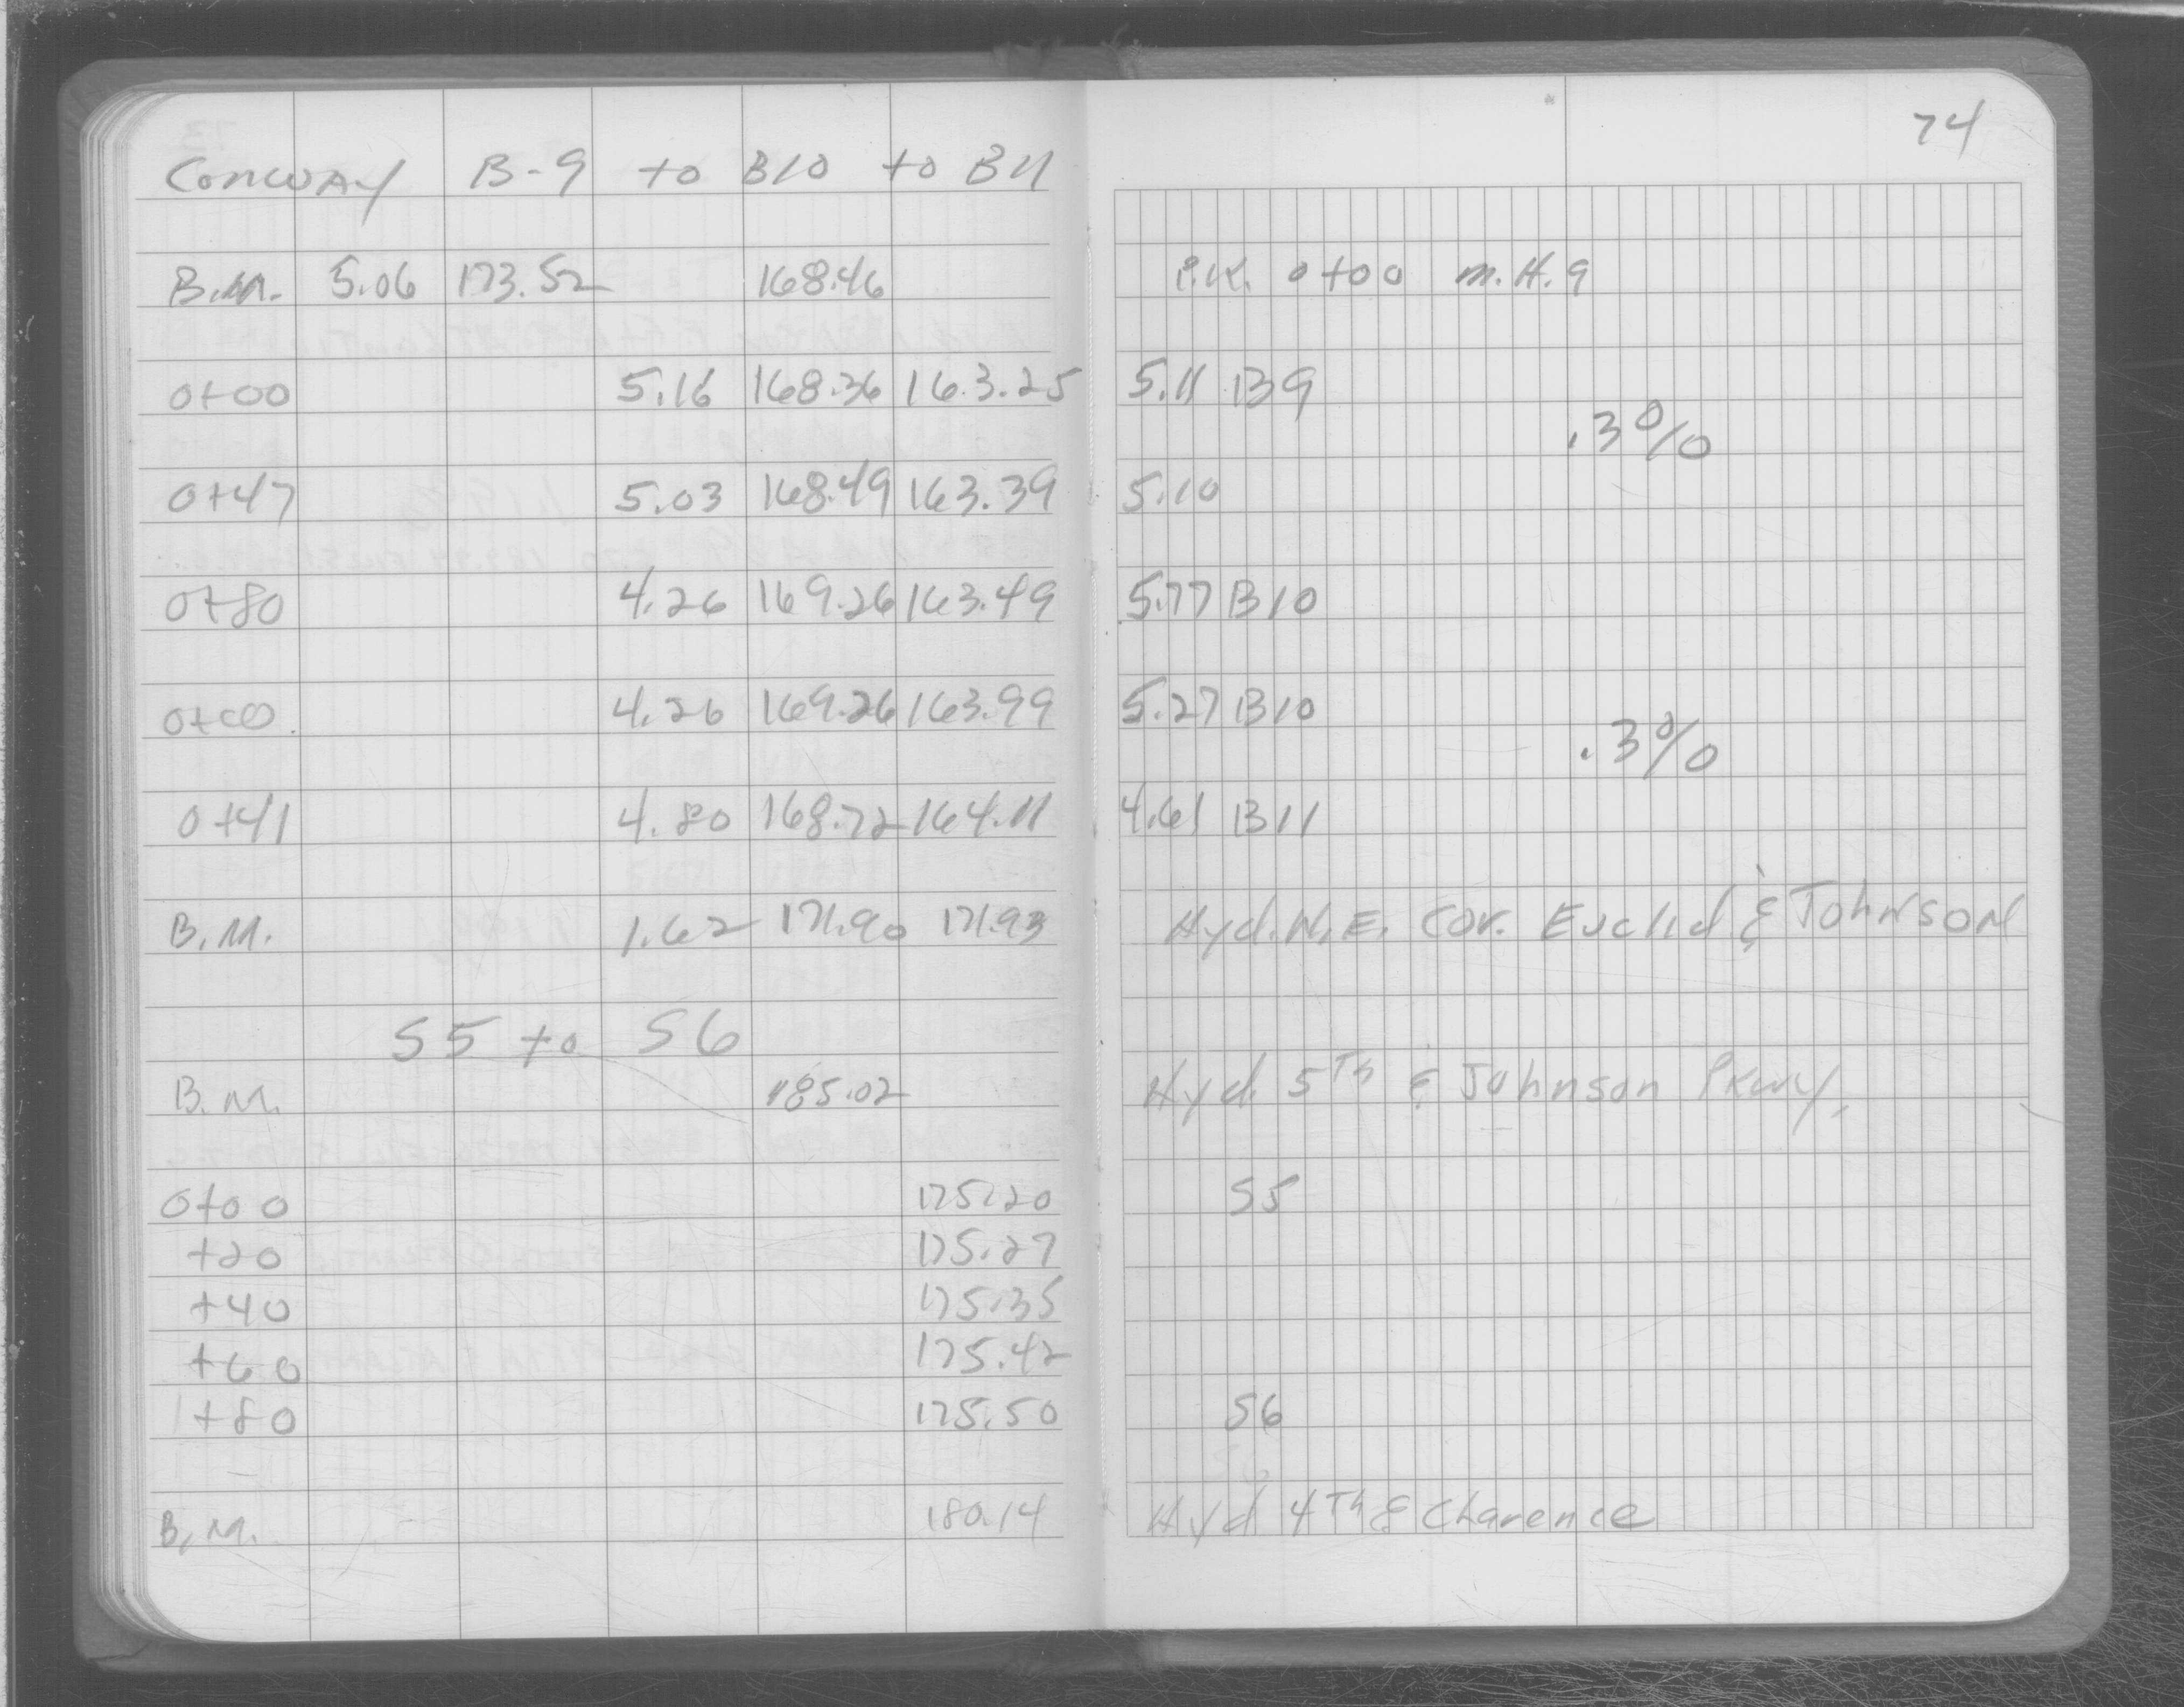 74
Conway B-9 to B10 to B11
B.M. 5.06 173.52 168.46 P.K. 0+00 M.H.9
0+00 5.16 168.36 163.25 5.11 B9
.3%
0+47 5.03 168.49 163.39 5.10
0+80 4.26 169.26 163.49 5.77 B10
0+00 4.26 169.26 163.99 5.27 B10
.3%
0+41 4.80 168.72 164.11 4.61 B11
B.M. 1.62 171.90 171.93 Hyd. N.E. Cor. Euclid & Johnson
S5 to S6
B.M. 185.02 Hyd. 5th & Johnson Pkwy.
0+00 175.20 S5
+20 175.27
+40 175.35
+60 175.42
+80 175.50 S6
B.M. 180.14 Hyd 4th & Clarence